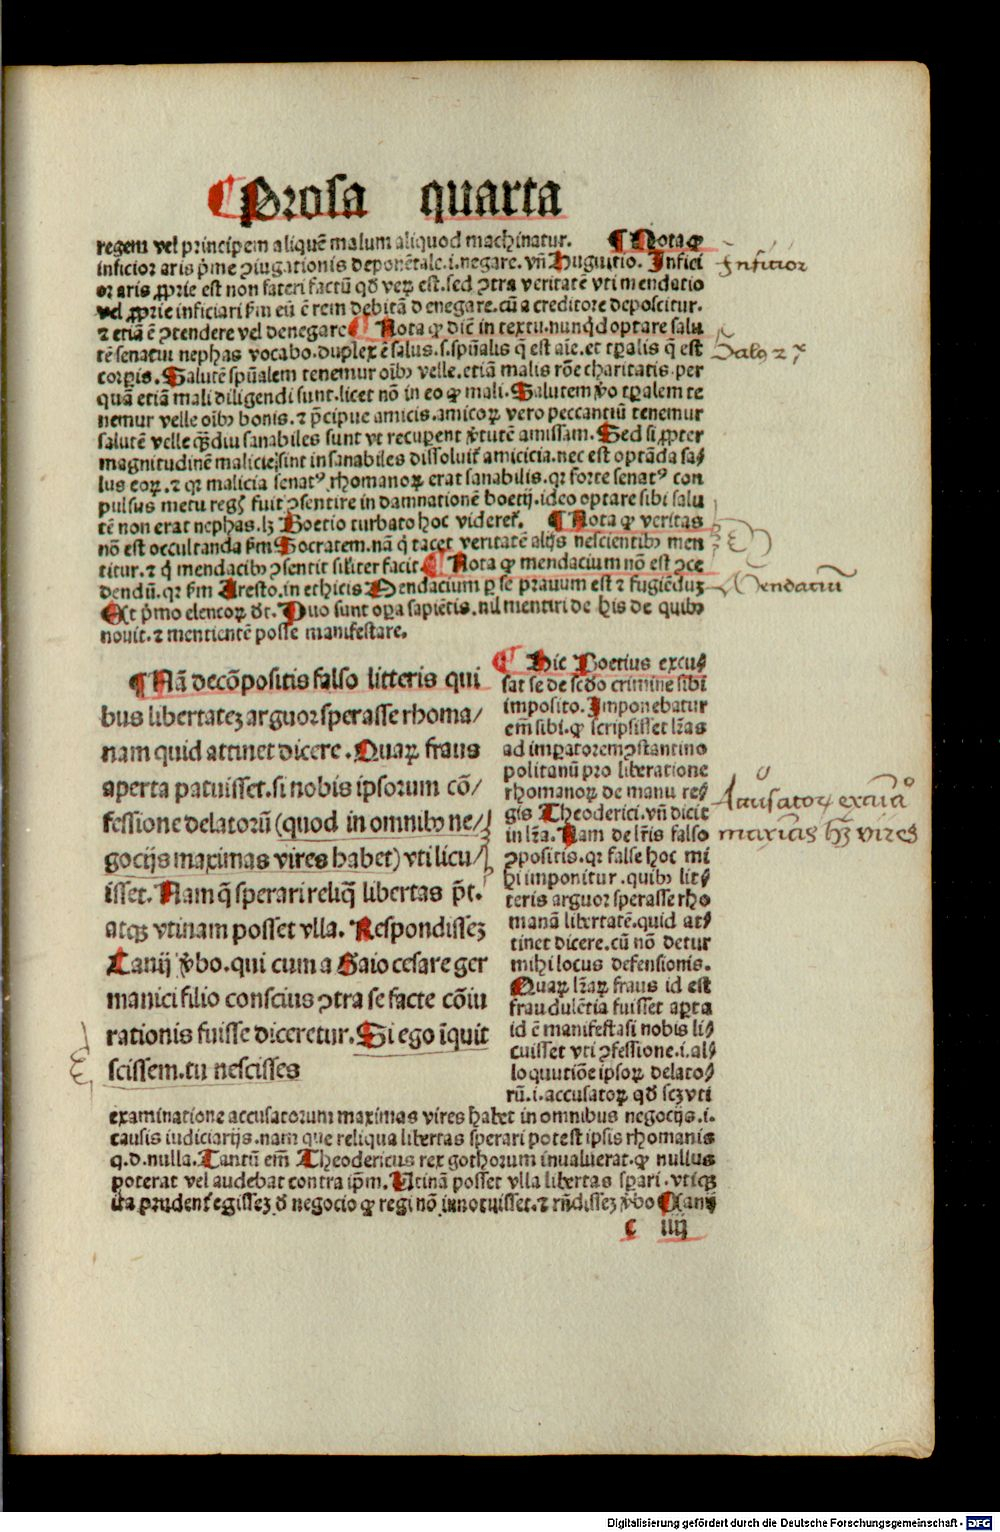 ¶ Prosa quarta
regem vel principem aliquē malum aliquod machinatur. ¶ Nota ꝙ
inficior aris p̄me ꝯiugationis deponētale.i.negare.vñ Huguitio. Infici
or aris ꝓprie est non fateri factū qd̄ veꝝ est.sed ꝯtra veritatē vti mendatio
vel ꝓprie inficiari ẜm eū ē rem debitā denegare.cū a creditore deposcitur.
⁊ etiā ē ꝯtendere vel denegare ¶ Nota ꝙ dicit̄ in textu.nunq̇d optare salu
tē senatui nephas vocabo.duplex ē salus.s.spūalis q̄ est aīe.et tꝑalis q̄ est
corꝑis. Salutē spūalem tenemur oībꝰ velle.etiā malis rōe charitatis.per
quā etiā mali diligendi sunt.licet nō in eo ꝙ mali. Salutem v̄o tꝑalem te
nemur velle oībꝰ bonis.⁊ p̄cipue amicis.amicoꝝ vero peccantiū tenemur
salutē velle qͣꝫdiu sanabiles sunt vt recuꝑent v̄tutē amissam. Sed si ꝓpter
magnitudinē malicie sint insanabiles dissoluit̄ amicicia.nec est optāda sa/
lus eoꝝ.⁊ qꝛ malicia senatꝰ rhomanoꝝ erat sanabilis.qꝛ forte senatꝰ con
pulsus metu regꝭ fuit ꝯsentire in damnationē boetij.ideo optare sibi salu
tē non erat nephas.lꝫ Boetio turbato hoc videret̄. ¶ Nota ꝙ veritas
nō est occultanda ẜm Socratem.nā q̇ tacet veritatē alijs nescientibꝰ men
titur.⁊ q̇ mendacibꝰ ꝯsentit sil̄iter facit ¶ Nota ꝙ mendacium nō est ꝯce
dendū.qꝛ ẜm Aresto.in ethicis Mendacium ꝑ se prauum est ⁊ fugiēdūꝫ
Et p̄mo elencoꝝ dr̄. Duo sunt oꝑa sapiētis.nil mentiri de his de quibꝰ
nouit.⁊ mentientē posse manifestare.
¶ Nā de cōpositis falso litteris qui
bus libertateꝫ arguor sperasse rhoma/
nam quid attinet dicere. Quaꝝ fraus
aperta patuisset.si nobis ipsorum cō/
fessione delatorū (quod in omnibꝰ ne/
gocijs maximas vires habet) vti licu/
isset. Nam q̄ sperari reliq̄ libertas p̄t.
atqꝫ vtinam posset vlla. Respondisseꝫ
Canij v̄bo.qui cum a Gaio cesare ger
manici filio conscius ꝯtra se facte cōiu
rationis fuisse diceretur. Si ego īquit
scissem.tu nescisses
¶ Hic Boetius excu/
sat se de sc̄do crimine sibi
imposito. Imponebatur
em̄ sibi.ꝙ scripsisset lr̄as
ad imꝑatorem ꝯstantino
politanū pro liberatione
rhomanoꝝ de manu re/
gis Theoderici.vñ dicit
in lr̄a. Nam de lr̄is falso
ꝯpositis.qꝛ false hoc mi
hi imponitur.quibꝰ lit/
teris arguor sperasse rho
manā libertatē.quid at/
tinet dicere.cū nō detur
mihi locus defensionis.
Quaꝝ lr̄aꝝ fraus id est
fraudulētia fuisset aꝑta
id ē manifesta si nobis li/
cuisset vti ꝯfessione.i.al/
loquutiōe ipsoꝝ delato/
rū.i.accusatoꝝ qd̄ scꝫ vti
examinatione accusatorum maximas vires habet in omnibus negocijs.i.
causis iudiciarijs.nam que reliqua libertas sperari potest ipsis rhomanis
q.d.nulla. Tantū em̄ Theodericus rex gothorum inualuerat.ꝙ nullus
poterat vel audebat contra ip̄m. Vtinā posset vlla libertas sꝑari.vtiqꝫ
ita prudent̄ egisseꝫ d̄ negocio ꝙ regi nō innotuisset.⁊ rn̄disseꝫ v̄bo Canij
c iiij
Infitior
Salꝰ 2ˣ
Mendatiū
Accusatoꝝ
maxīas hꝫ vires
Digitalisierung gefördert durch die Deutsche Forschungsgemeinschaft - DFG